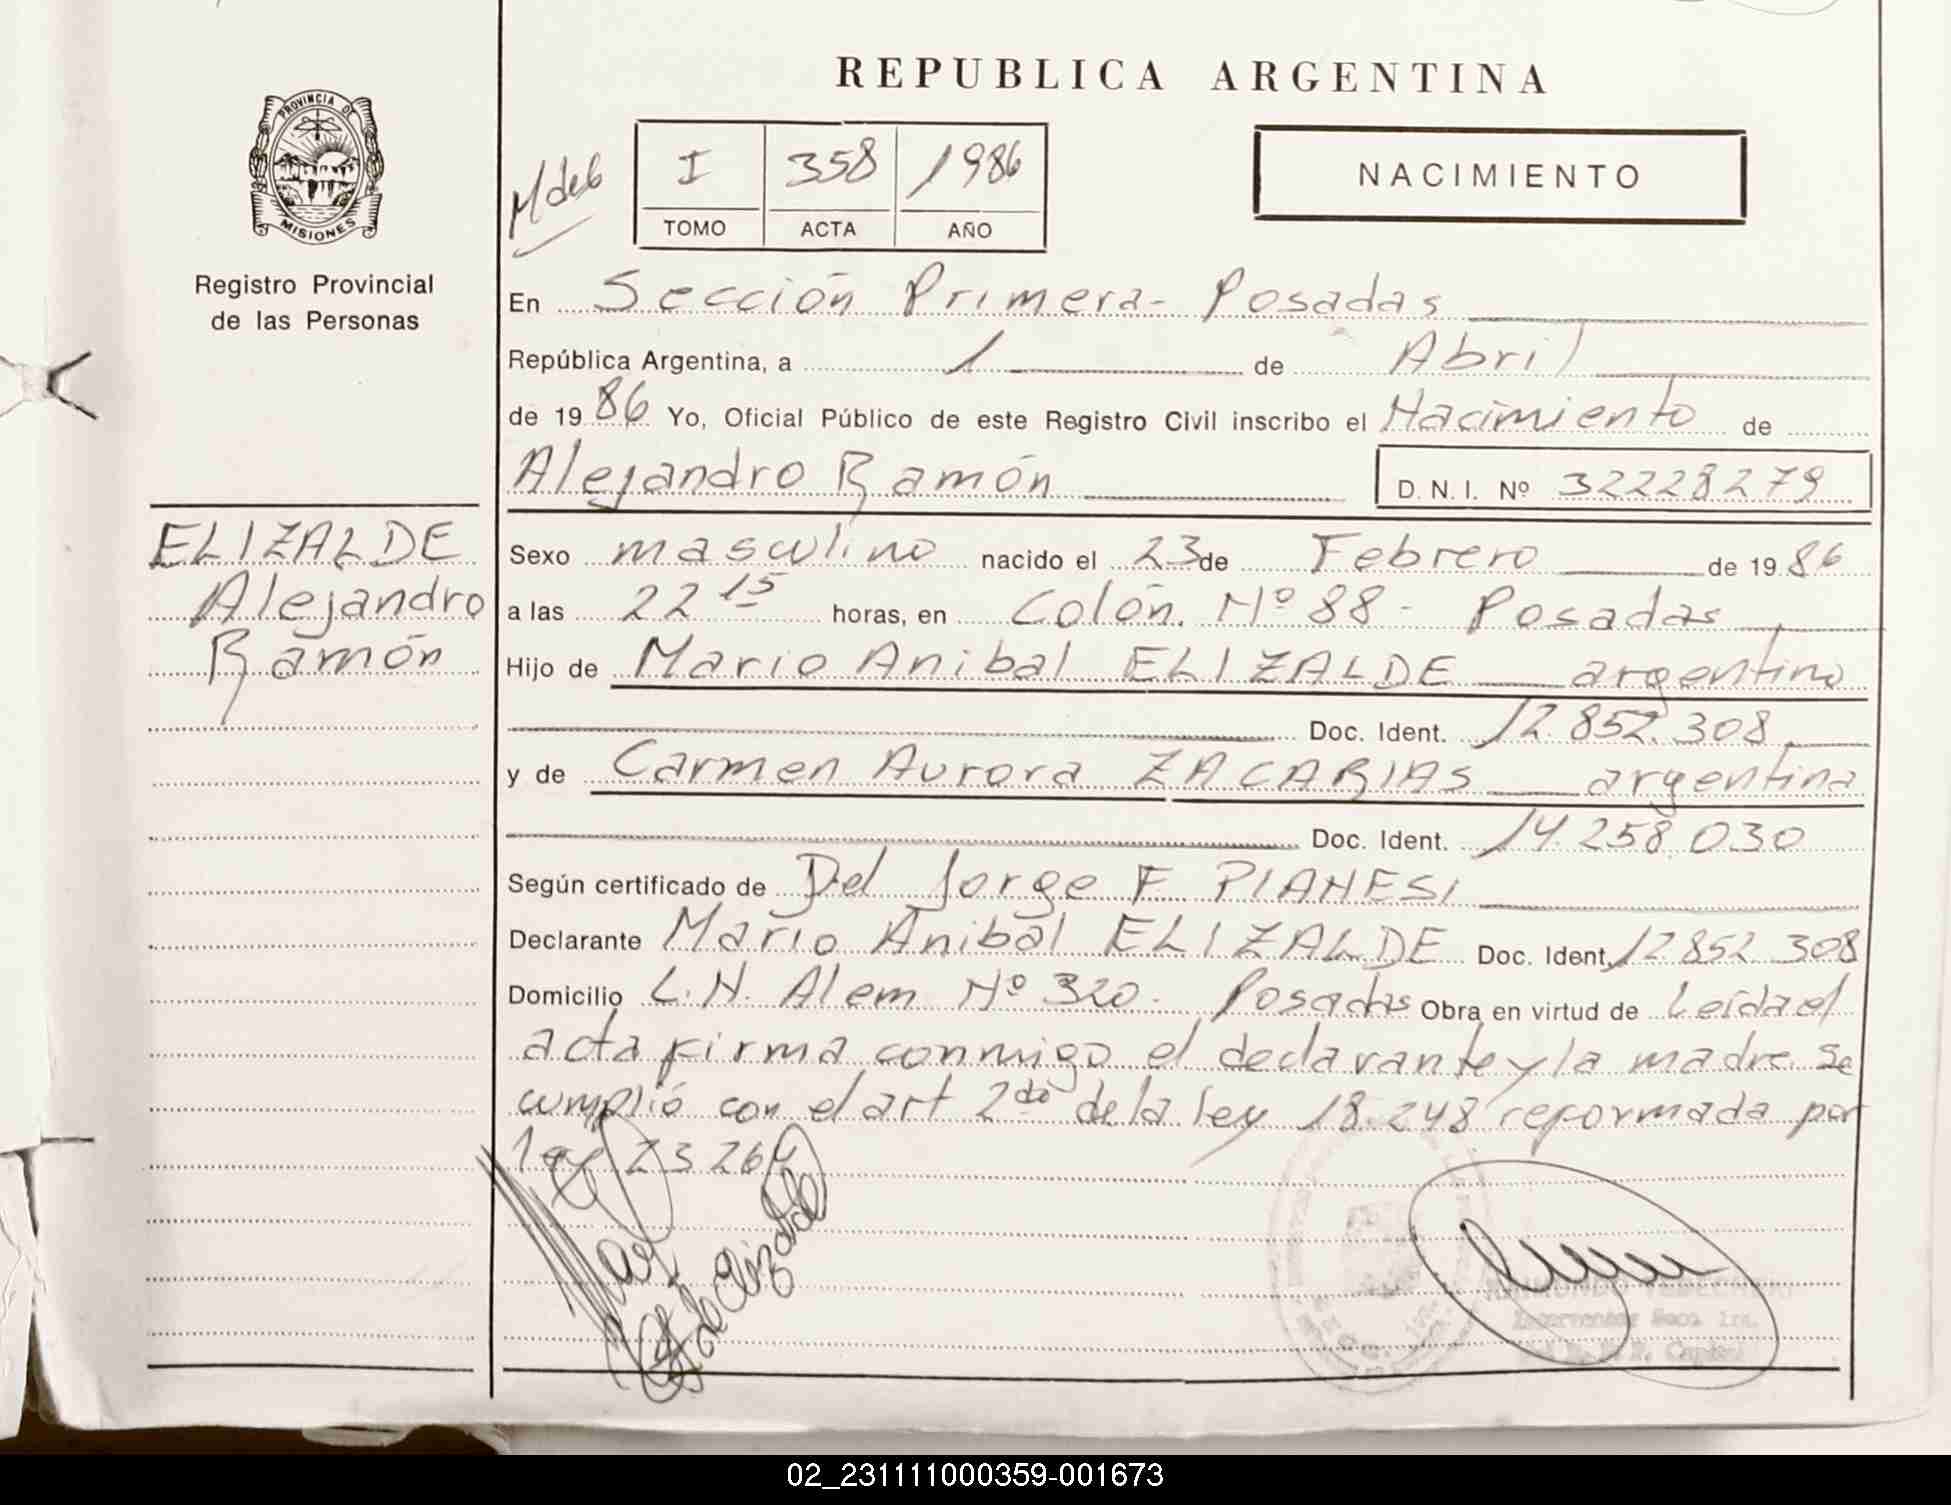 REPUBLICA ARGENTINA
PROVINCIA DE
MISIONES
Registro Provincial
de las Personas
I 358 1986
TOMO ACTA AÑO
NACIMIENTO
En Sección Primera - Posadas
República Argentina, a 1 de Abril
de 1986 Yo, Oficial Público de este Registro Civil inscribo el Nacimiento de
Alejandro Ramón D.N.I. Nº 32228279
ELIZALDE
Alejandro
Ramón
Sexo masculino nacido el 23 de Febrero de 1986
a las 22 15 horas, en Colón. Nº 88 - Posadas
Hijo de Mario Anibal ELIZALDE argentino
Doc. Ident. 12.852.308
y de Carmen Aurora ZACARIAS argentina
Doc. Ident. 14.258.030
Según certificado de Del Jorge F. PIANESI
Declarante Mario Anibal ELIZALDE Doc. Ident. 12852308
Domicilio L.N. Alem Nº 320. Posadas Obra en virtud de Leída el
acta firma conmigo el declarante y la madre. Se
cumplió con el art 2do de la ley 18.248 reformada por
ley 23264
02_231111000359-001673